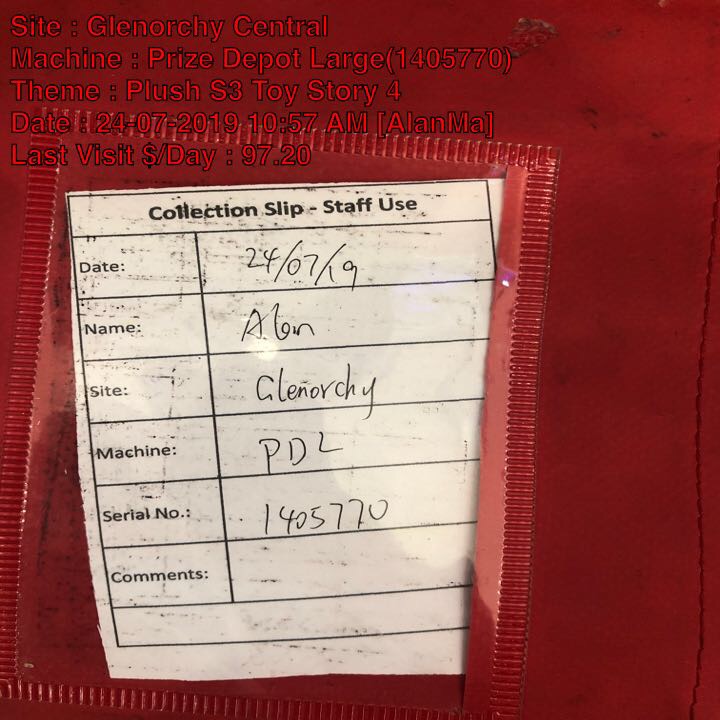 Site : Glenorchy Central
Machine : Prize Depot Large(1405770)
Theme : Plush S3 Toy Story 4
Date : 24-07-2019 10:57 AM [AlanMa]
Last Visit $/Day : 97.20
Collection Slip - Staff Use
Date: 24/07/19
Name: Alan
Site: Glenorchy
Machine: PDL
Serial No.: 1405770
Comments: